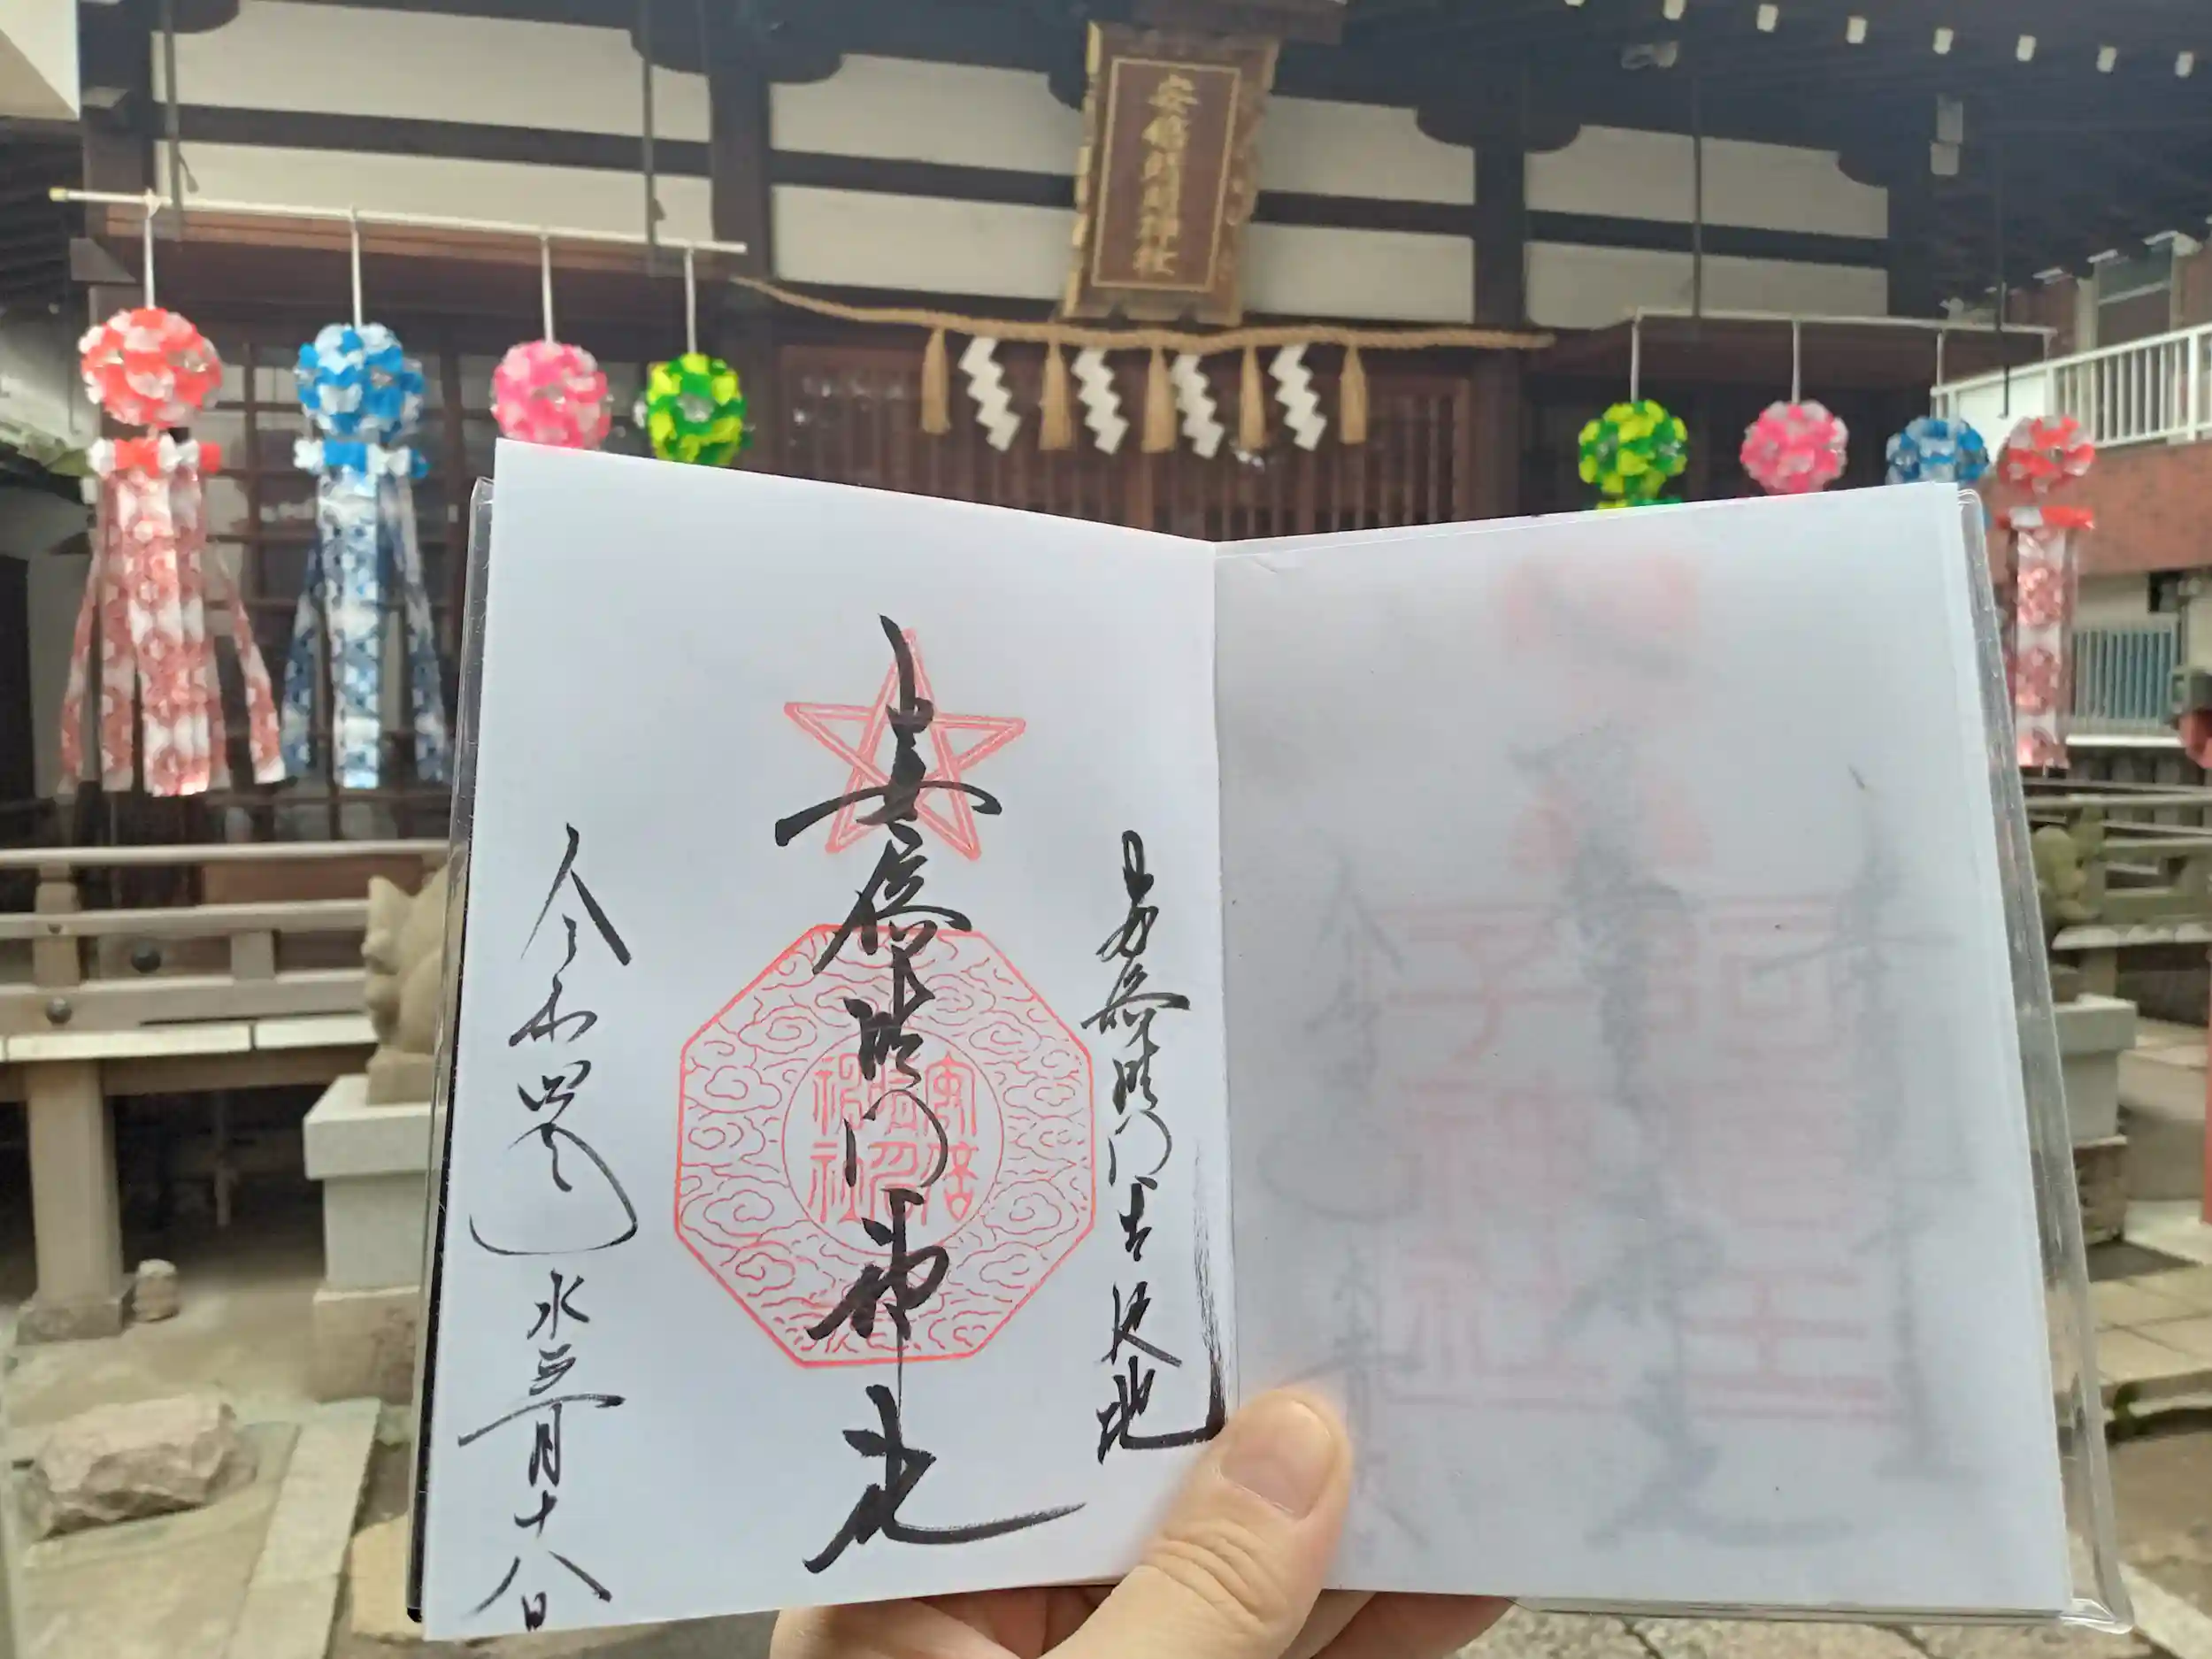 安倍晴明神社
安倍晴明
地
安倍晴明神社
安倍
晴明
神社
令和四年水無月十八日